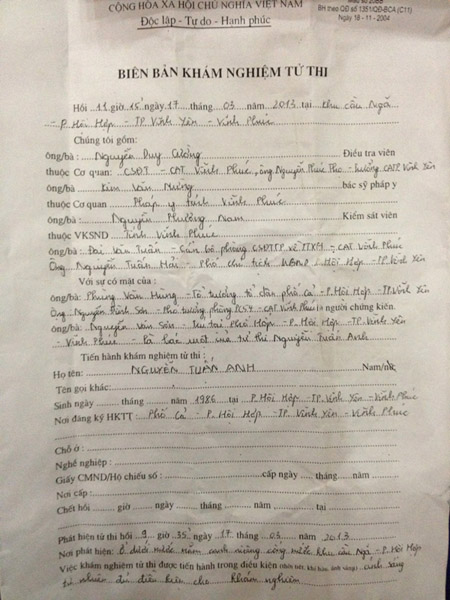 CỘNG HÒA XÃ HỘI CHỦ NGHĨA VIỆT NAM
Độc lập - Tự do - Hạnh phúc
BH theo QĐ số 1351/QĐ-BCA (C11)
Ngày 18 - 11 - 2004
BIÊN BẢN KHÁM NGHIỆM TỬ THI
Hồi 11 giờ 15 ngày 17 tháng 03 năm 2013 tại khu cầu Ngã
- P. Hội Hợp - TP. Vĩnh Yên - Vĩnh Phúc
Chúng tôi gồm:
ông/bà : Nguyễn Duy Cường Điều tra viên
thuộc Cơ quan: CSĐT - CAT Vĩnh Phúc, ông Nguyễn Phúc Thọ - trưởng CATP. Vĩnh Yên
ông/bà : Kim Văn bác sỹ pháp y
thuộc Cơ quan Pháp y tỉnh Vĩnh Phúc
ông/bà : Nguyễn Phương Nam Kiểm sát viên
thuộc VKSND Tỉnh Vĩnh Phúc
ông/bà : Đại Văn Tuấn - Cán bộ phòng CSĐTTP về TTXH - CAT Vĩnh Phúc
Ông Nguyễn Tuấn Hải - Phó chủ tịch UBND P. Hội Hợp - TP. Vĩnh Yên
Với sự có mặt của :
ông/bà: Phùng Văn Hùng - Tổ trưởng tổ dân phố cả - P. Hội Hợp - TP. Vĩnh Yên
Ông Nguyễn Sơn - Phó trưởng phòng PC54 - CAT Vĩnh Phúc là người chứng kiến.
ông/bà: Nguyễn Văn Sơn - trú tại P. Hội Hợp - TP. Vĩnh Yên
- Vĩnh Phúc - là bác ruột của tử thi Nguyễn Tuấn Anh
Tiến hành khám nghiệm tử thi :
Họ tên: NGUYỄN TUẤN ANH Nam/nữ
Tên gọi khác:
Sinh ngày tháng năm 1986 tại P. Hội Hợp - TP. Vĩnh Yên - Vĩnh Phúc
Nơi đăng ký HKTT : Phố Cả - P. Hội Hợp - TP. Vĩnh Yên - Vĩnh Phúc
Chỗ ở :
Nghề nghiệp :
Giấy CMND/Hộ chiếu số : cấp ngày tháng năm
Nơi cấp :
Chết hồi giờ ngày tháng năm tại
Phát hiện tử thi hồi 9 giờ 35 ngày 17 tháng 03 năm 2013
Nơi phát hiện: Ở dưới nước nằm cạnh miệng cống nước khu cầu Ngã, P. Hội Hợp
Việc khám nghiệm tử thi được tiến hành trong điều kiện (thời tiết, khí hậu, ánh sáng) ánh sáng
tự nhiên đủ điều kiện cho khám nghiệm